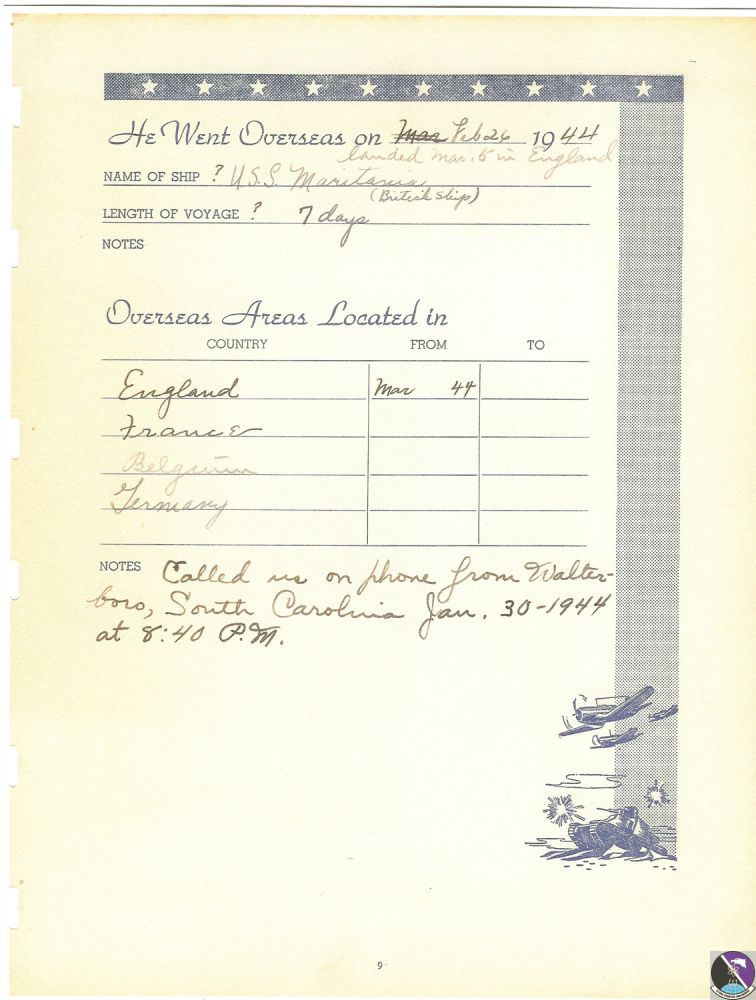 He Went Overseas on Mar Feb 26 1944
landed Mar. 5 in England
NAME OF SHIP ? U.S.S. Maritania
(British ship)
LENGTH OF VOYAGE ? 7 days
NOTES
Overseas Areas Located in
COUNTRY FROM TO
England Mar 44
France
Belgium
Germany
NOTES Called us on phone from Walter-
boro, South Carolina Jan. 30-1944
at 8:40 P.M.
9